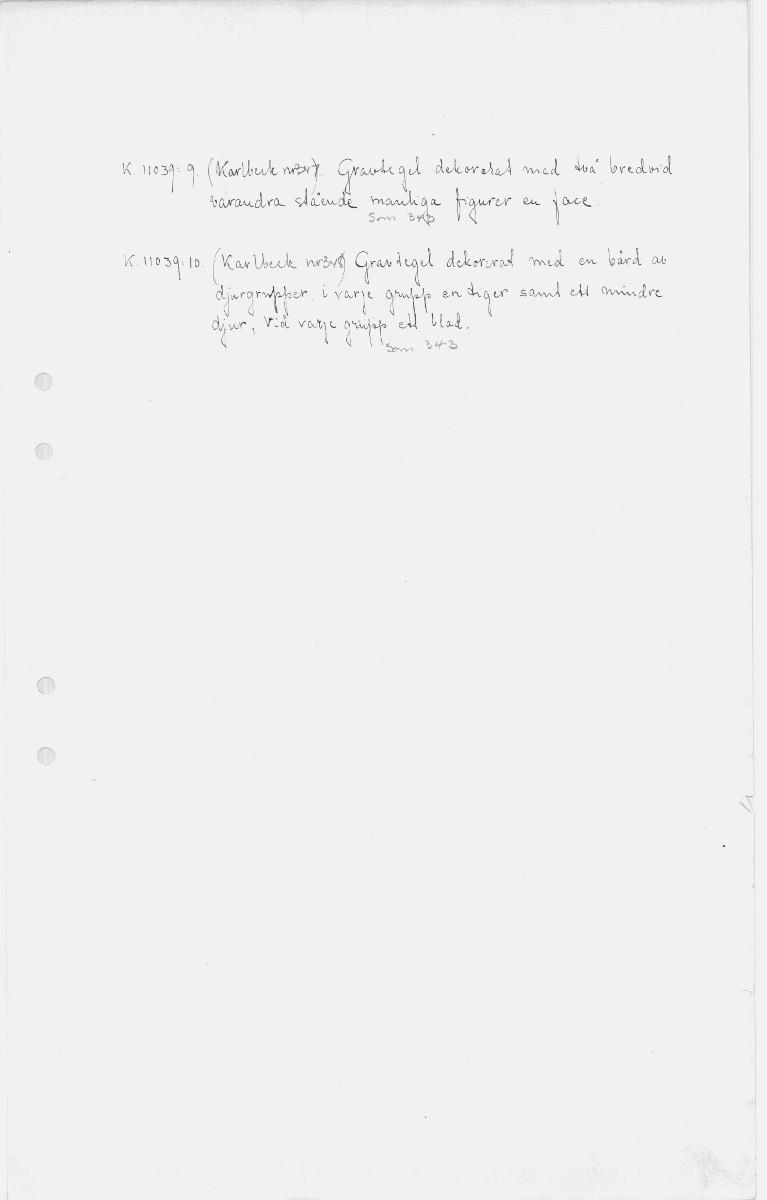 K. 11039:9. (Karlbeck nr 347). Gravtegel dekorerat med två bredvid
varandra stående manliga figurer en face.
Som 343
K. 11039:10. (Karlbeck nr 348) Gravtegel dekorerat med en bård av
djurgrupper, i varje grupp en tiger samt ett mindre
djur, vid varje grupp ett blad.
Som 343